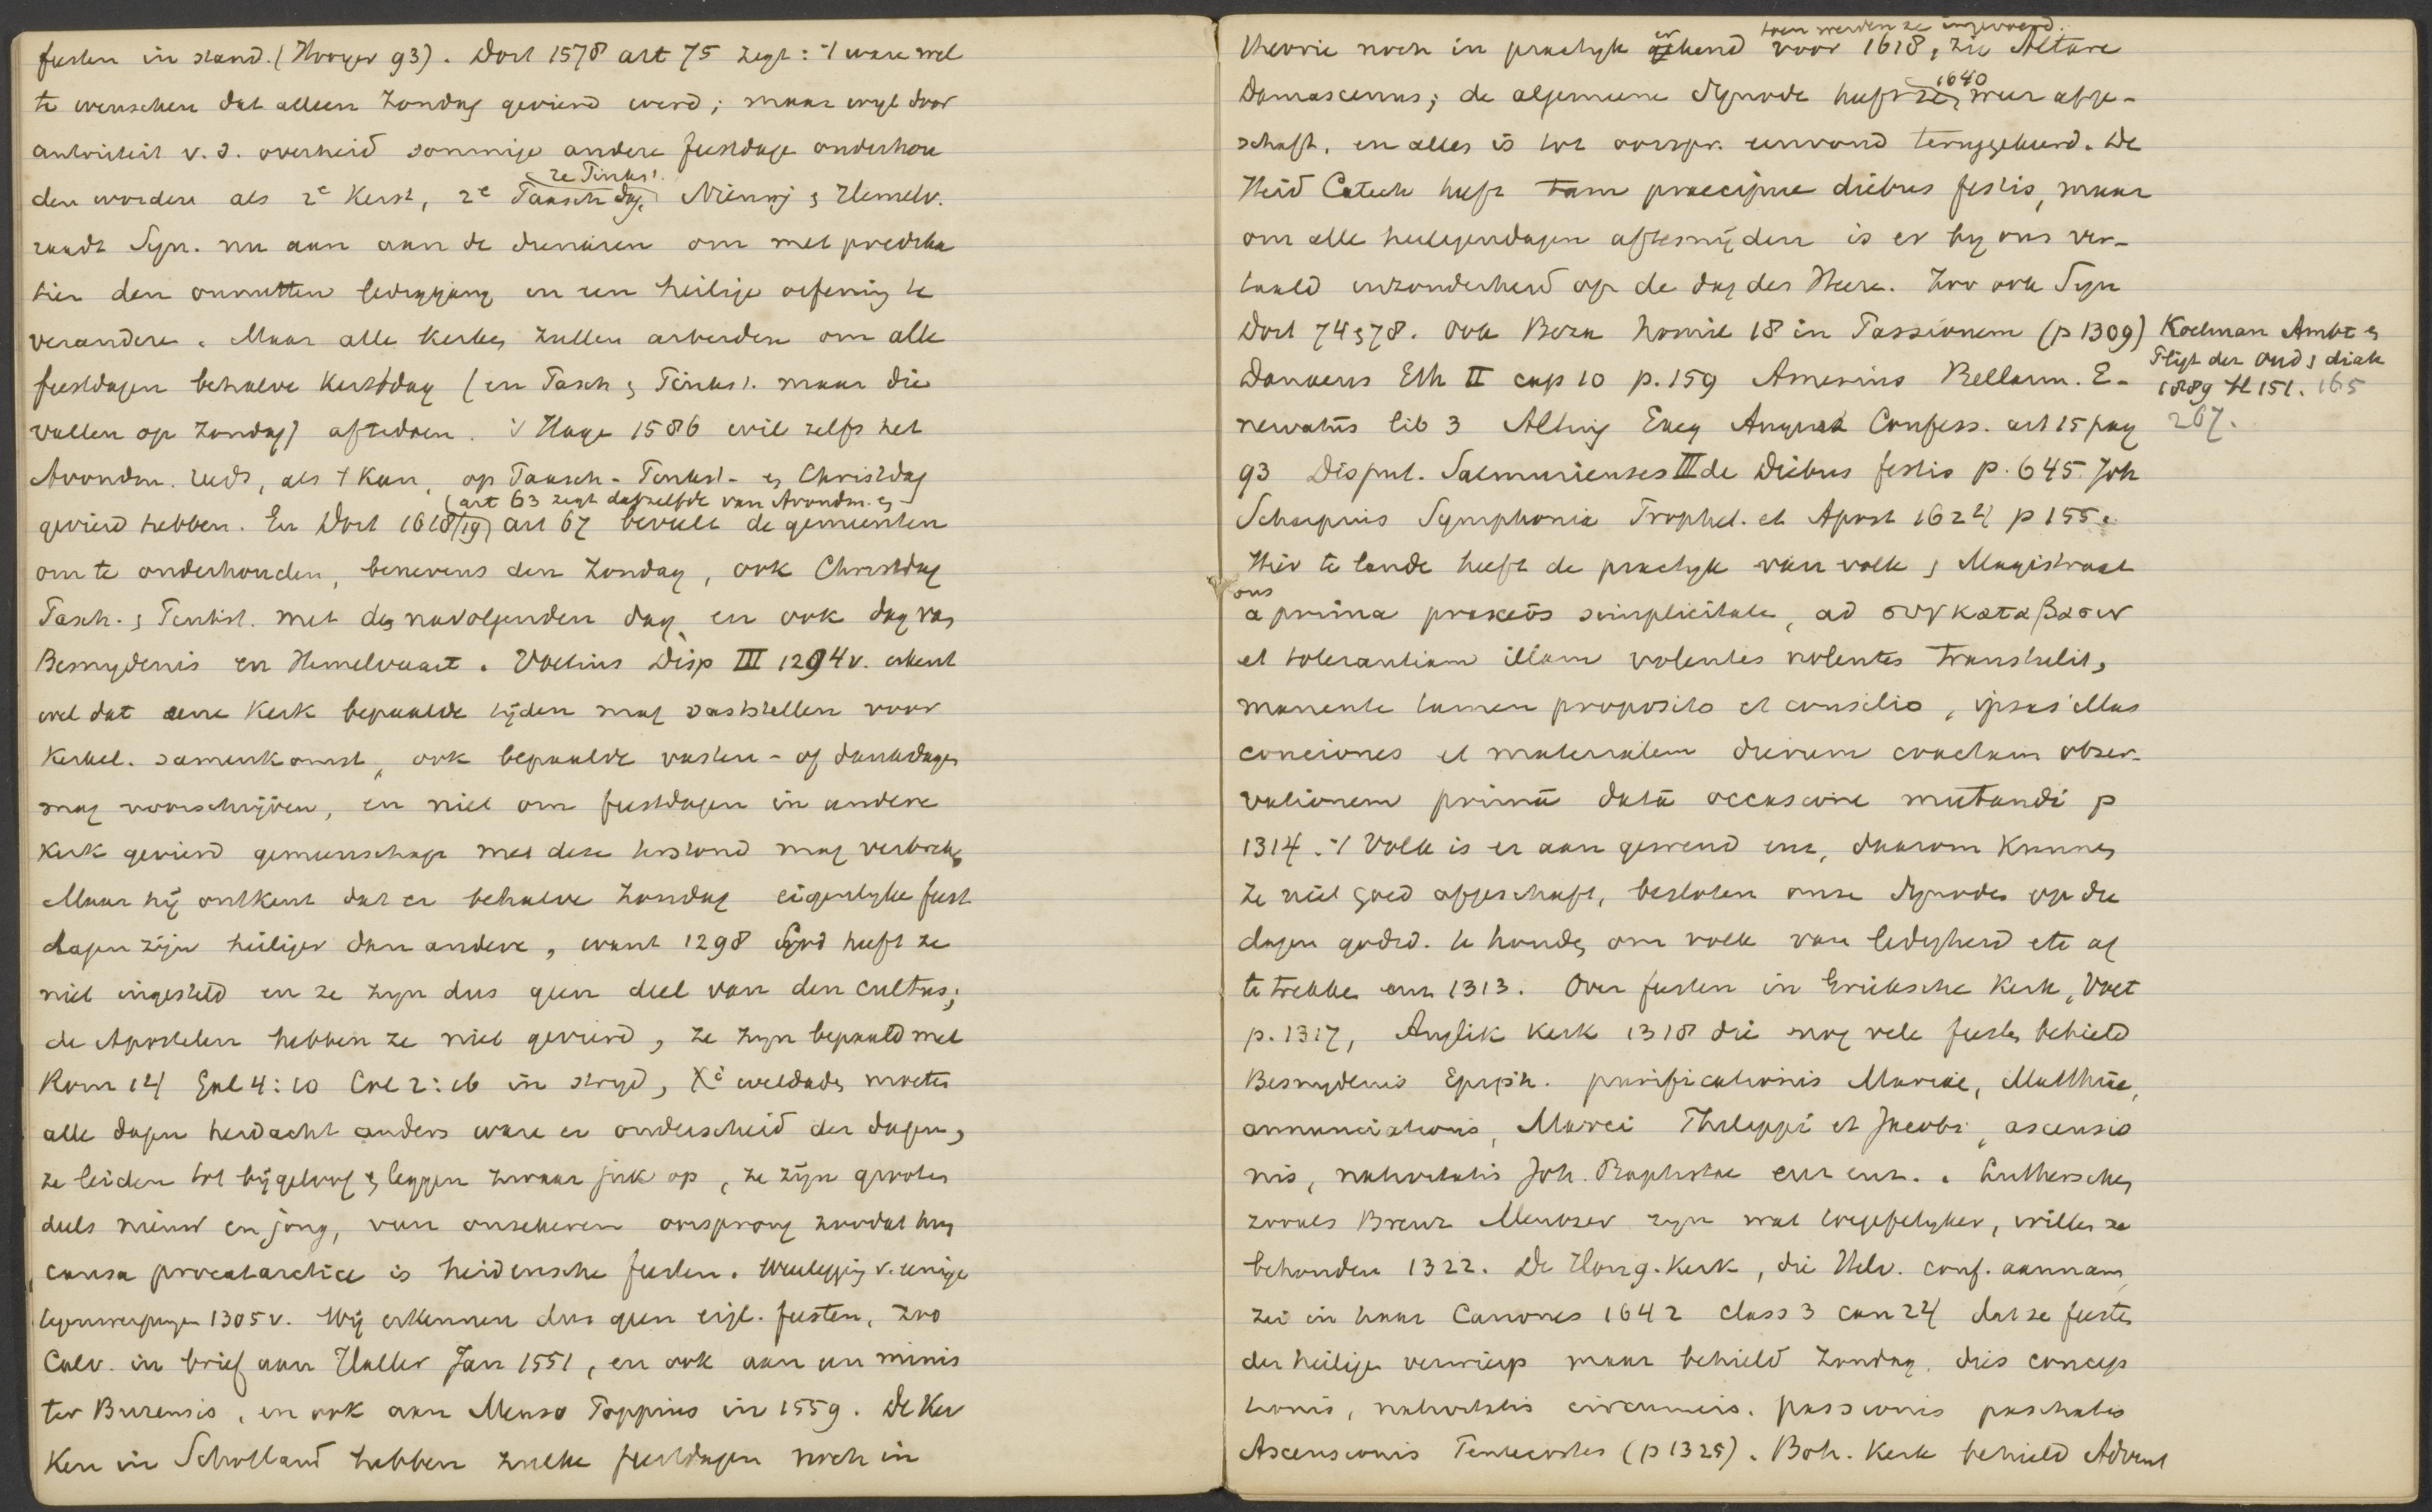 feesten in stand. (Hooyer 93). Dort 1578 art 75 zegt: 't ware wel
te wenschen dat alleen Zondag gevierd werd; maar wyl door
autoriteit v. d. overheid sommige andere feestdage onderhou
den worden als 2e Kerst, 2e Paasch dag, 2e Pinkst. Nieuwj & Hemelv.
raadt Syn. nu aan aan de dienaren om met predika
tien den onnutten lediggang in een heilige oefening te
veranderen. Maar alle kerken zullen arbeiden om alle
feestdagen behalve Kerstdag (en Pasch & Pinkst. maar die
vallen op Zondag) aftedoen. 's Hage 1586 wil zelfs het
Avondm. reeds, als 't kan, op Paasch- Pinkst- en Christdag
(art 63 zegt datzelfde van Avondm. en
gevierd hebben. En Dort 1618/19) art 67 beveelt de gemeenten
om te onderhouden, benevens den Zondag, ook Christdag
Pasch. & Pinkst. met den navolgenden dag, en ook dag van
Besnydenis en Hemelvaart. Voetius Disp III 1294v. erkent
wel dat eene Kerk bepaalde tijden mag vaststellen voor
kerkel. samenkomst, ook bepaalde vasten- of dankdagen
mag voorschrijven, en niet om feestdagen in andere
kerk gevierd gemeenschap met deze terstond mag verbreken
Maar hij ontkent dat er behalve Zondag eigenlyke feest
dagen zijn heiliger dan andere, want 1298 God heeft ze
niet ingesteld en ze zyn dus geen deel van den cultus;
de Apostelen hebben ze niet gevierd, ze zyn bepaald met
Rom 14 Gal 4:10 Col 2:16 in stryd, Xi weldaden moeten
alle dagen herdacht anders ware er onderscheid der dagen,
ze leiden tot bijgeloof & leggen zwaar juk op, ze zijn grooten
deels nieuw en jong, van onzekeren oorsprong zoodat hun
causa procatarctice is heidensche feesten. Weerlegging v. eenige
tegenwerpingen 1305v. Wij erkennen dus geen eigl. feesten, zoo
Calv. in brief aan Haller Jan 1551, en ook aan un minis
ter Burensis, en ook aan Menso Poppius in 1559. De Ker
ken in Schotland hebben zulke feestdagen noch in
toen werden ze ingevoerd.
theorie noch in practyk erkend voor 1618, zie Altare
Damascenus; de algemeene Synode heeft ze 1640 weer afge-
schaft, en alles is tot oorspr. eenvoud teruggekeerd. De
Heid Catech heeft tam praecipue diebus festis, maar
om alle heiligendagen aftesnijden is er by ons ver-
taald inzonderheid op de dag des Heere. Zoo ook Syn
Dort 74 & 78. Ook Beza homil 18 in Passionem (p 1309)
Danaeus Eth II cap 10 p. 159 Amesius Bellarm. E-
nervatus lib 3 Alting Exeg August Confess. art 15 pag
93 Disput. Salmurienses III de Diebus festis p. 645. Joh
Scharpius Symphonia Prophet. et Apost 1624 p 155.
Koelman Ambt en
Pligt der Oud & diak
1889 bl 151. 165
267.
Hier te lande heeft de practyk van volk & Magistraat
ons
a prima praxeos simplicitate, ad συνκαταβασιν
et tolerantiam illam volentes nolentes transtulit,
manente tamen proposito et consilio, ipsas illas
conciones et materialem dierum coactam obser-
vationem primâ datâ occasione mutandi p
1314. 't Volk is er aan gewend enz, daarom kunnen
ze niet goed afgeschaft, besloten onze Synodes op die
dagen godsd. te houden om volk van ledigheid etc af
te trekken enz 1313. Over feesten in Grieksche Kerk, Voet
p. 1317, Anglik kerk 1318 die nog vele feesten behield
Besnydenis Epiph. purificationis Mariae, Matthiae,
annunciationis, Marci Philippi et Jacobi, ascensio
nis, nativitatis Joh. Baptistae enz enz.. Lutherschen
zooals Brenz Mentzer zyn wat toegefelyker, willen ze
behouden 1322. De Hong. Kerk, die Helv. conf. aannam,
zei in haar Canones 1642 class 3 can 24 dat ze feesten
der heiligen verwierp maar behield Zondag, dies concep
tionis, nativitatis circumcis. passionis paschatos
Ascensionis Pentecostes (p 1325). Boh. Kerk behield Advent